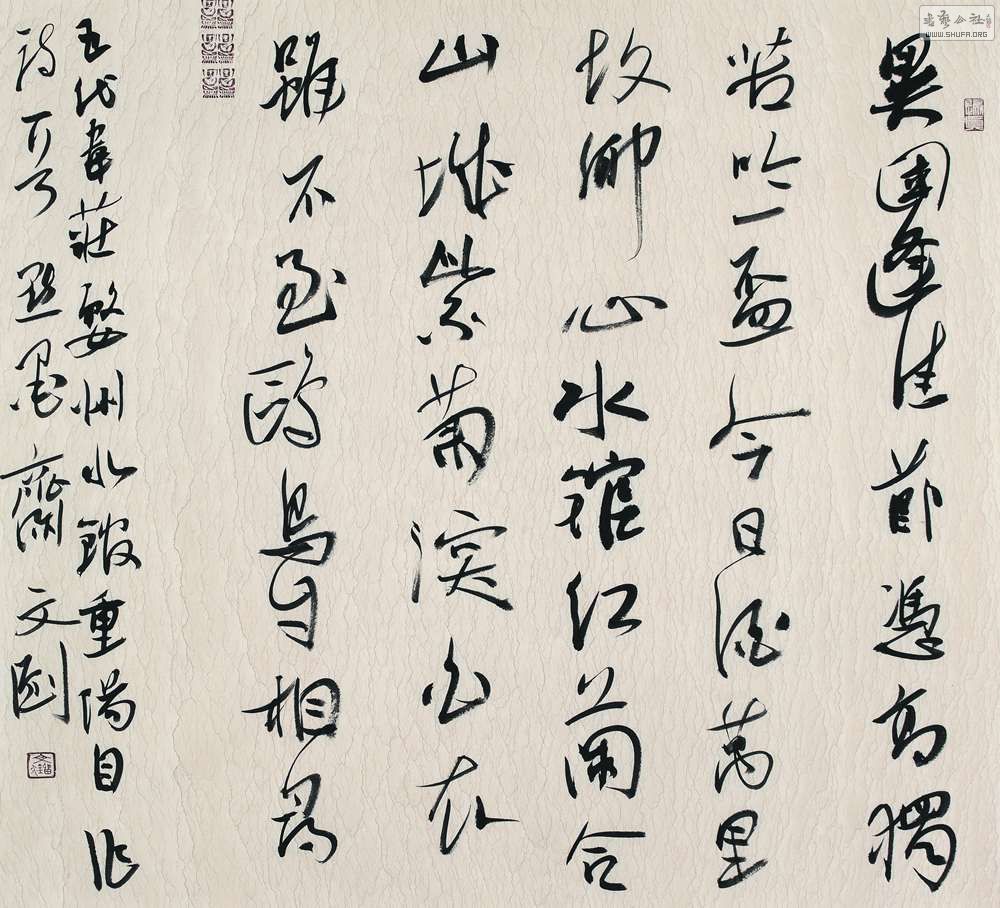 異國逢佳節憑高獨
苦吟一盃今日酒萬里
故鄉心水舘紅蘭合
山城紫菊深白衣
雖不至鷗鳥自相尋
五代韋莊婺州水館重陽日作
詩 點墨齋文
書藝公社
WWW.SHUFA.ORG